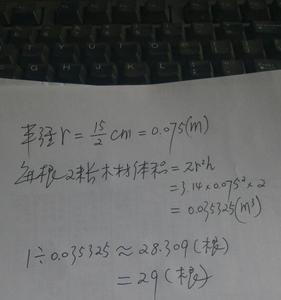 半径r = 15/2 cm = 0.075(m)
每根2米长木材体积 = πr²h
= 3.14×0.075²×2
= 0.035325(m³)
1÷0.035325≈28.309(根)
= 29(根)